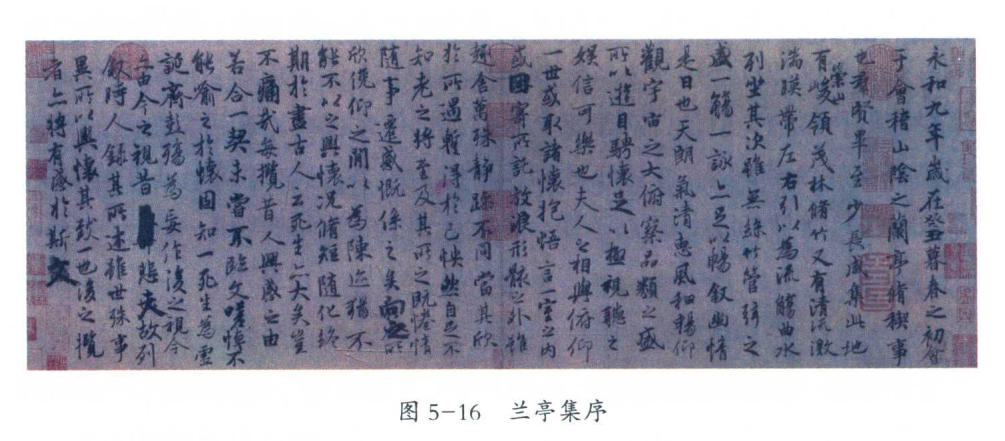 永和九年歲在癸丑暮春之初會
于會稽山陰之蘭亭脩稧事
也羣賢畢至少長咸集此地
有崇山峻領茂林脩竹又有清流激
湍暎帶左右引以為流觴曲水
列坐其次雖無絲竹管弦之
盛一觴一詠亦足以暢叙幽情
是日也天朗氣清惠風和暢仰
觀宇宙之大俯察品類之盛
所以遊目騁懷足以極視聽之
娛信可樂也夫人之相與俯仰
一世或取諸懷抱悟言一室之內
或因寄所託放浪形骸之外雖
趣舍萬殊靜躁不同當其欣
於所遇暫得於己怏然自足不
知老之將至及其所之既惓情
隨事遷感慨係之矣向之所
欣俛仰之閒以為陳迹猶不
能不以之興懷況脩短隨化終
期於盡古人云死生亦大矣豈
不痛哉每攬昔人興感之由
若合一契未嘗不臨文嗟悼不
能喻之於懷固知一死生為虛
誕齊彭殤為妄作後之視今
亦由今之視昔悲夫故列
叙時人錄其所述雖世殊事
異所以興懷其致一也後之攬
者亦將有感於斯文
图 5-16 兰亭集序